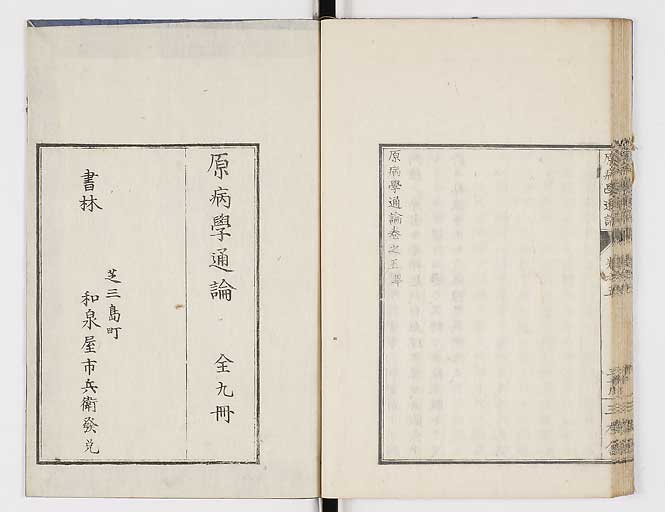 原病學通論卷之五畢
原病學通論　全九冊
書林
芝三島町
和泉屋市兵衛發兌